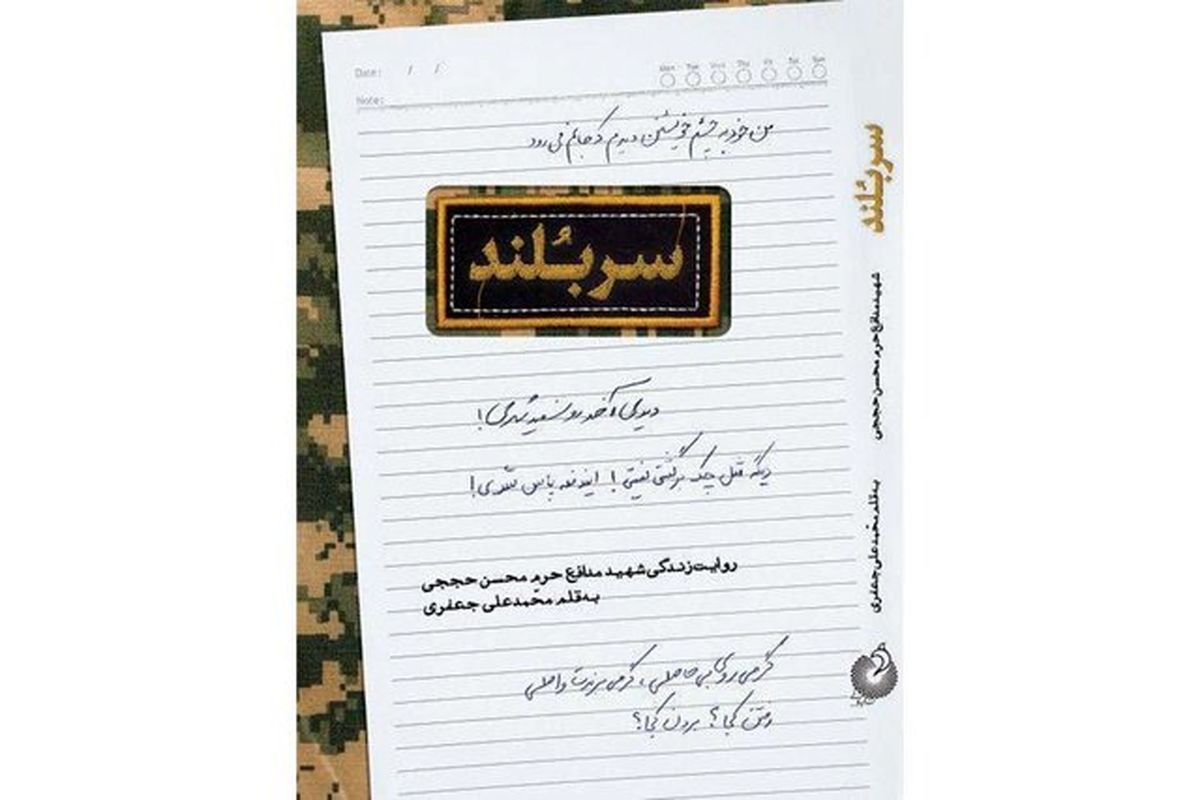 Date: / /
Mon Tue Wed Thu Fri Sat Sun
Note:
من خود به چشم خویشتن دیدم که جانم می‌رود
سربُلند
دیدی آخر رو سفید شدی!
دیگه مثل چک برگشتی نیستی! ایندفعه پاس شدی!
روایت زندگی شهید مدافع حرم محسن حججی
به قلم محمّدعلی جعفری
گر می‌روی بی حاصلی، گر می‌برندت واصلی
رفتن کجا؟ بردن کجا؟
سربُلند
شهید مدافع حرم محسن حججی
به قلم محمّدعلی جعفری